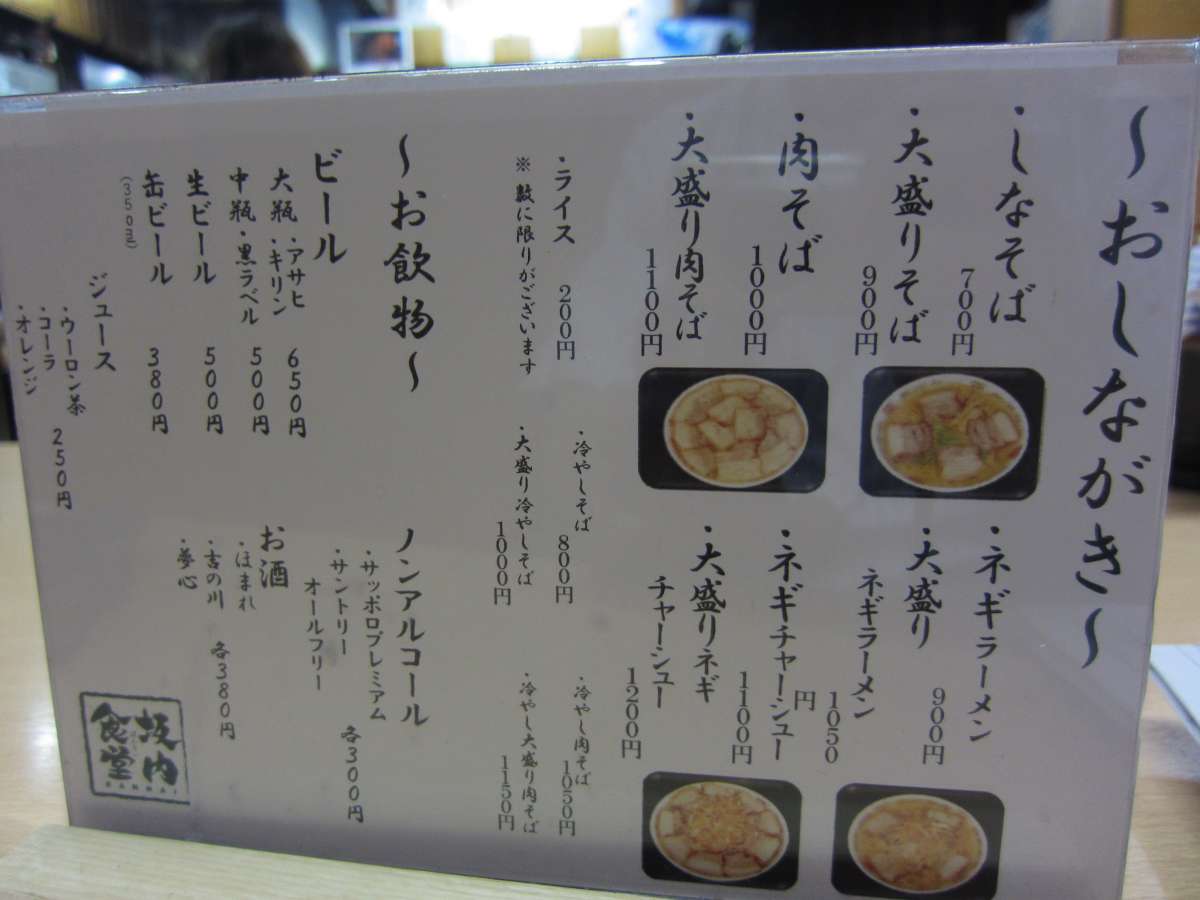 〜おしながき〜
・しなそば
700円
・大盛りそば
900円
・肉そば
1000円
・大盛り肉そば
1100円
・ネギラーメン
900円
・大盛り
ネギラーメン
1050
円
・ネギチャーシュー
1100円
・大盛りネギ
チャーシュー
1200円
・ライス
200円
※数に限りがございます
・冷やしそば
800円
・大盛り冷やしそば
1000円
・冷やし肉そば
1050円
・冷やし大盛り肉そば
1150円
〜お飲物〜
ビール
大瓶・アサヒ
・キリン
650円
中瓶・黒ラベル
500円
生ビール
500円
缶ビール
380円
(350ml)
ジュース
・ウーロン茶
・コーラ
・オレンジ
250円
ノンアルコール
・サッポロプレミアム
・サントリー
オールフリー
各300円
お酒
・ほまれ
・吉の川
・夢心
各380円
坂内
食堂
BANNAI